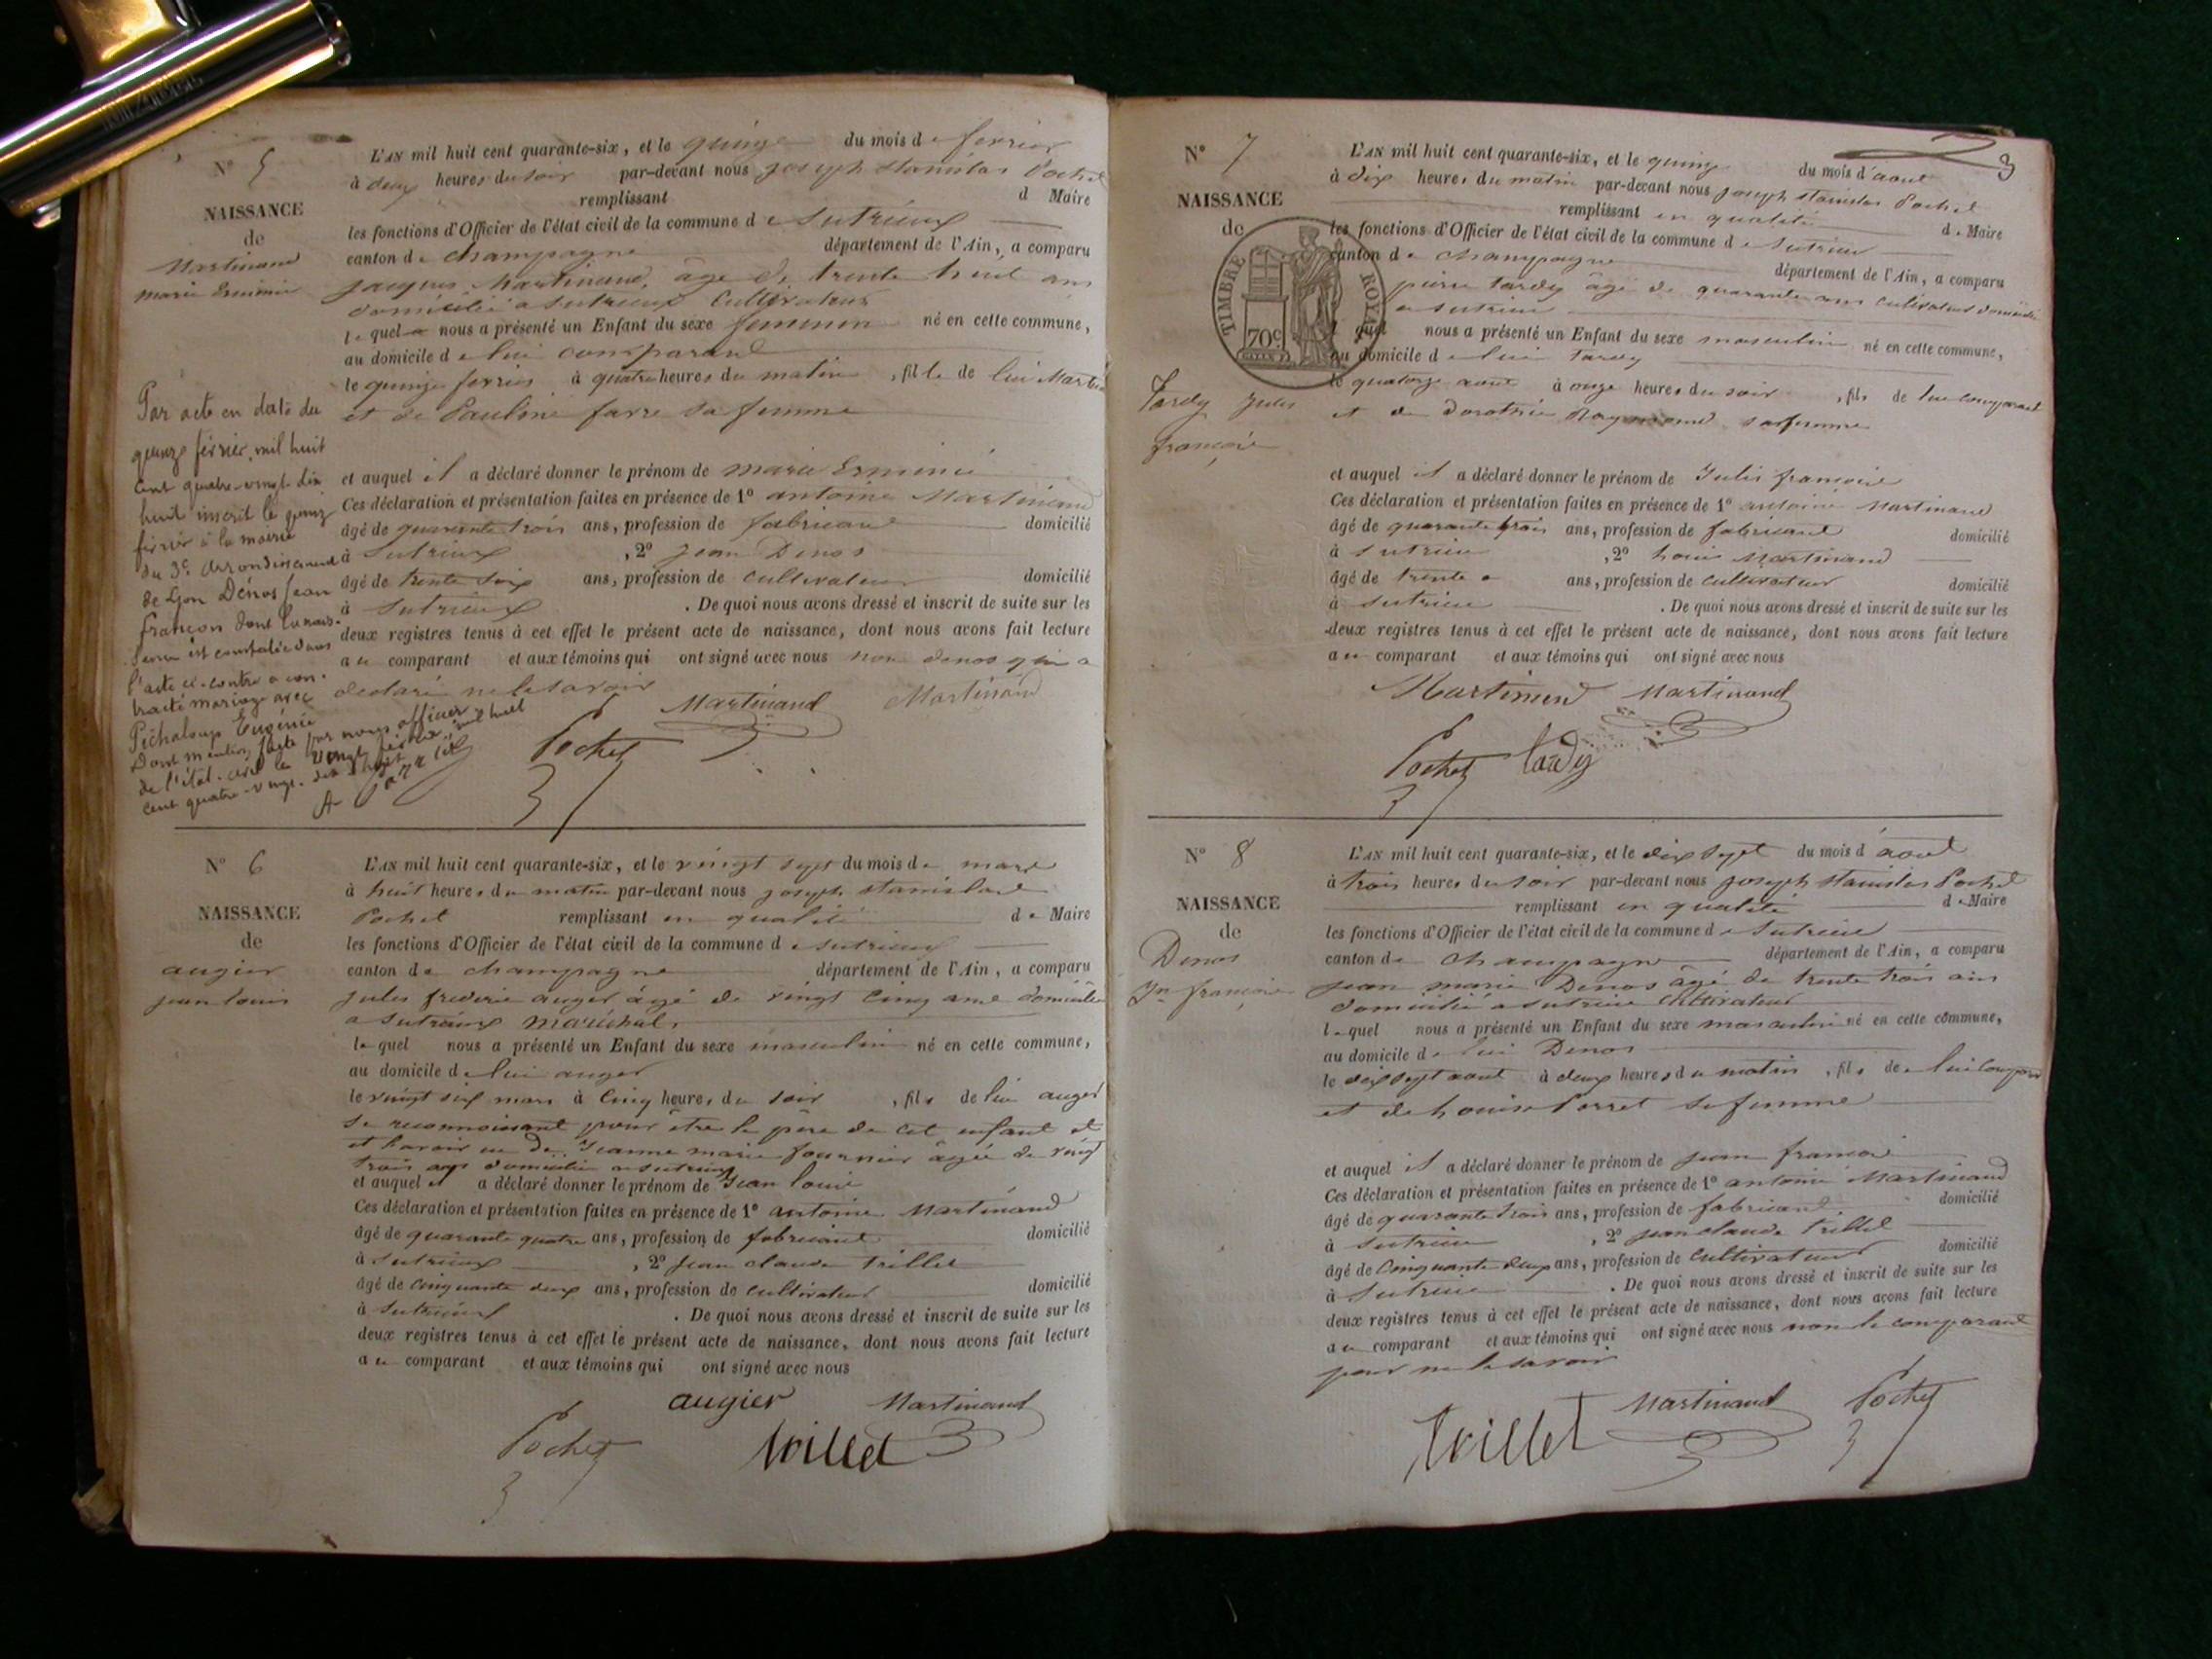 N° 5
NAISSANCE
de
Martinand
marie Erminie
L'AN mil huit cent quarante-six, et le quinze du mois de fevrier
à deux heures du soir par-devant nous joseph stanislas Pochet
remplissant d Maire
les fonctions d'Officier de l'état civil de la commune de Sutrieux
canton de champagne département de l'Ain, a comparu
jacques Martinand, âgé de trente huit ans
domicilié a sutrieux Cultivateur
lequel nous a présenté un Enfant du sexe feminin né en cette commune,
au domicile de lui comparant
le quinze fevrier à quatre heures du matin, fille de lui Martin
et de Pauline farre sa femme
et auquel il a déclaré donner le prénom de marie Erminie
Ces déclaration et présentation faites en présence de 1° antoine Martinand
âgé de quarante trois ans, profession de fabricant domicilié
à Sutrieux, 2° jean Denos
âgé de trente six ans, profession de cultivateur domicilié
à Sutrieux. De quoi nous avons dressé et inscrit de suite sur les
deux registres tenus à cet effet le présent acte de naissance, dont nous avons fait lecture
au comparant et aux témoins qui ont signé avec nous non denos qui a
declaré ne le savoir
Martinand Martinand
Pochet
Par acte en date du
quinze février, mil huit
cent quatre-vingt dix
huit inscrit le quinze
février à la mairie
du 3e arrondissement
de Lyon Dénos Jean
françois dont la nais-
sance est constatée dans
l'acte ci-contre a con-
tracté mariage avec
Pichaloup Eugénie
Dont mention faite par nous officier
de l'état-civil le vingt février mil huit
cent quatre-vingt-dix huit
N° 6
NAISSANCE
de
augier
jean louis
L'AN mil huit cent quarante-six, et le vingt sept du mois de mars
à huit heures du matin par-devant nous joseph stanislas
Pochet remplissant en qualité de Maire
les fonctions d'Officier de l'état civil de la commune de Sutrieux
canton de champagne département de l'Ain, a comparu
jules frederic auger âgé de vingt cinq ans domicilié
a sutrieux maréchal,
lequel nous a présenté un Enfant du sexe masculin né en cette commune,
au domicile de lui auger
le vingt six mars à Cinq heures du soir, fils de lui auger
se reconnoissant pour être le père de cet enfant et
l'avoir eu de Jeanne marie fournier âgée de vingt
trois ans domicilie a sutrieux
et auquel il a déclaré donner le prénom de Jean louis
Ces déclaration et présentation faites en présence de 1° antoine Martinand
âgé de quarante quatre ans, profession de fabricant domicilié
à Sutrieux, 2° jean claude trillet
âgé de Cinquante deux ans, profession de cultivateur domicilié
à Sutrieux. De quoi nous avons dressé et inscrit de suite sur les
deux registres tenus à cet effet le présent acte de naissance, dont nous avons fait lecture
au comparant et aux témoins qui ont signé avec nous
augier Martinand
Pochet trillet
3
N° 7
NAISSANCE
de
TIMBRE ROYAL
70c
Tardy Jules
françois
L'AN mil huit cent quarante-six, et le quinze du mois d'aout
à dix heures du matin par-devant nous joseph stanislas Pochet
remplissant en qualité de Maire
les fonctions d'Officier de l'état civil de la commune de Sutrieu
canton de champagne département de l'Ain, a comparu
pierre tardy âgé de quarante ans cultivateur domicilié
a sutrieu
lequel nous a présenté un Enfant du sexe masculin né en cette commune,
au domicile de lui tardy
le quatorze aout à onze heures du soir, fils de lui comparant
et de dorothée Raymond sa femme
et auquel il a déclaré donner le prénom de Jules françois
Ces déclaration et présentation faites en présence de 1° antoine Martinand
âgé de quarante trois ans, profession de fabricant domicilié
à Sutrieu, 2° louis Martinand
âgé de trente ans, profession de cultivateur domicilié
à Sutrieu. De quoi nous avons dressé et inscrit de suite sur les
deux registres tenus à cet effet le présent acte de naissance, dont nous avons fait lecture
au comparant et aux témoins qui ont signé avec nous
Martinand Martinand
Pochet tardy
N° 8
NAISSANCE
de
Denos
Jn françois
L'AN mil huit cent quarante-six, et le dix sept du mois d'aout
à trois heures du soir par-devant nous joseph stanislas Pochet
remplissant en qualité de Maire
les fonctions d'Officier de l'état civil de la commune de Sutrieu
canton de champagne département de l'Ain, a comparu
jean marie Denos âgé de trente trois ans
domicilié a sutrieu cultivateur
lequel nous a présenté un Enfant du sexe masculin né en cette commune,
au domicile de lui Denos
le dix sept aout à deux heures du matin, fils de lui compar
et de louise Porret sa femme
et auquel il a déclaré donner le prénom de jean françois
Ces déclaration et présentation faites en présence de 1° antoine Martinand
âgé de quarante trois ans, profession de fabricant domicilié
à Sutrieu, 2° jean claude trillet
âgé de Cinquante deux ans, profession de cultivateur domicilié
à Sutrieu. De quoi nous avons dressé et inscrit de suite sur les
deux registres tenus à cet effet le présent acte de naissance, dont nous avons fait lecture
au comparant et aux témoins qui ont signé avec nous non le comparant
pour ne le savoir
trillet Martinand Pochet